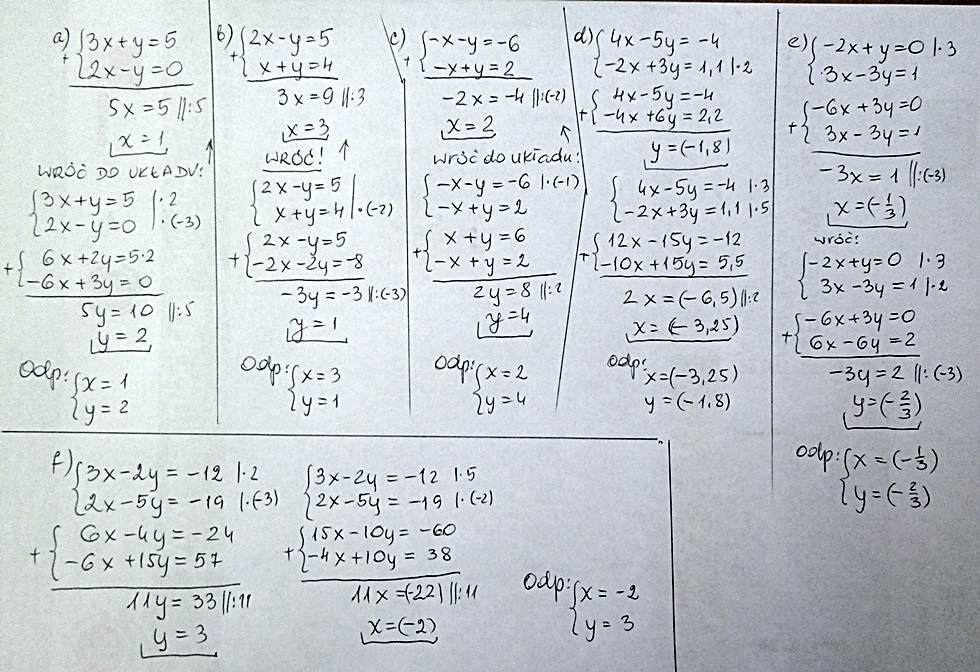 a) + { 3x+y=5
2x-y=0
5x=5 ||:5
x=1
WRÓĆ DO UKŁADU:
{ 3x+y=5 |·2
2x-y=0 |·(-3)
+ { 6x+2y=5·2
-6x+3y=0
5y=10 ||:5
y=2
Odp: { x=1
y=2
b) + { 2x-y=5
x+y=4
3x=9 ||:3
x=3
WRÓĆ!
{ 2x-y=5
x+y=4 |·(-2)
+ { 2x-y=5
-2x-2y=-8
-3y=-3 ||:(-3)
y=1
Odp: { x=3
y=1
c) + { -x-y=-6
-x+y=2
-2x=-4 ||:(-2)
x=2
wróć do układu:
{ -x-y=-6 |·(-1)
-x+y=2
+ { x+y=6
-x+y=2
2y=8 ||:2
y=4
Odp: { x=2
y=4
d) { 4x-5y=-4
-2x+3y=1,1 |·2
+ { 4x-5y=-4
-4x+6y=2,2
y=(-1,8)
{ 4x-5y=-4 |·3
-2x+3y=1,1 |·5
+ { 12x-15y=-12
-10x+15y=5,5
2x=(-6,5) ||:2
x=(-3,25)
Odp: x=(-3,25)
y=(-1,8)
e) { -2x+y=0 |·3
3x-3y=1
+ { -6x+3y=0
3x-3y=1
-3x=1 ||:(-3)
x=(-1/3)
wróć:
{ -2x+y=0 |·3
3x-3y=1 |·2
+ { -6x+3y=0
6x-6y=2
-3y=2 ||:(-3)
y=(-2/3)
Odp: { x=(-1/3)
y=(-2/3)
f) { 3x-2y=-12 |·2
2x-5y=-19 |·(-3)
+ { 6x-4y=-24
-6x+15y=57
11y=33 ||:11
y=3
{ 3x-2y=-12 |·5
2x-5y=-19 |·(-2)
+ { 15x-10y=-60
-4x+10y=38
11x=(-22) ||:11
x=(-2)
Odp: { x=-2
y=3